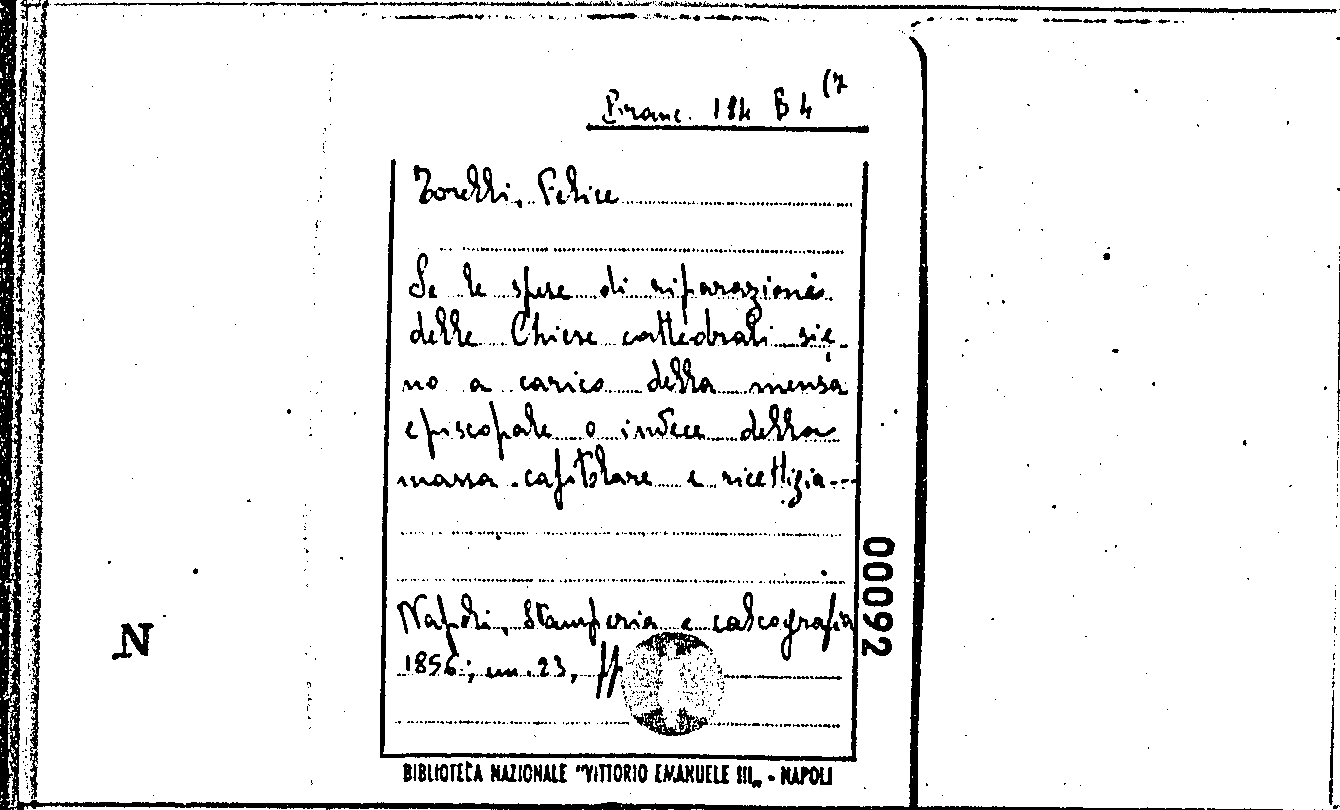 Branc. 114 B 4 (7
Torelli, Felice
Se le spese di riparazione
delle Chiese cattedrali sie-
no a carico della mensa
episcopale o invece della
massa capitolare e ricettizia ---
Napoli, Stamperia e calcografia
1856; cm. 23, pp
00092
N
BIBLIOTECA NAZIONALE "VITTORIO EMANUELE III„ - NAPOLI